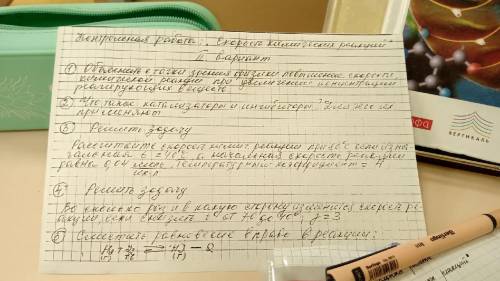 Контрольная работа. Скорость химических реакций
II вариант
① Объясните с точки зрения физики повышение скорости
химической реакции при увеличении концентрации
реагирующих веществ.
② Что такое катализаторы и ингибиторы? Для чего их
применяют
③ Решить задачу
Рассчитайте скорость химич. реакции при 80°C если
начальная t = 40°C а начальная скорость реакции
равна 0,04 моль Температурный коэффициент = 4
④ Решить задачу
Во сколько раз и в какую сторону изменится скорость ре
акции, если снизить t от 70 до 40° γ = 3
⑤ Сместить равновесие вправо в реакции:
H₂ + I₂ ⇄ HI − Q
(г) (г) (г)
фа
ВЕРТИКАЛЬ
Berlingo